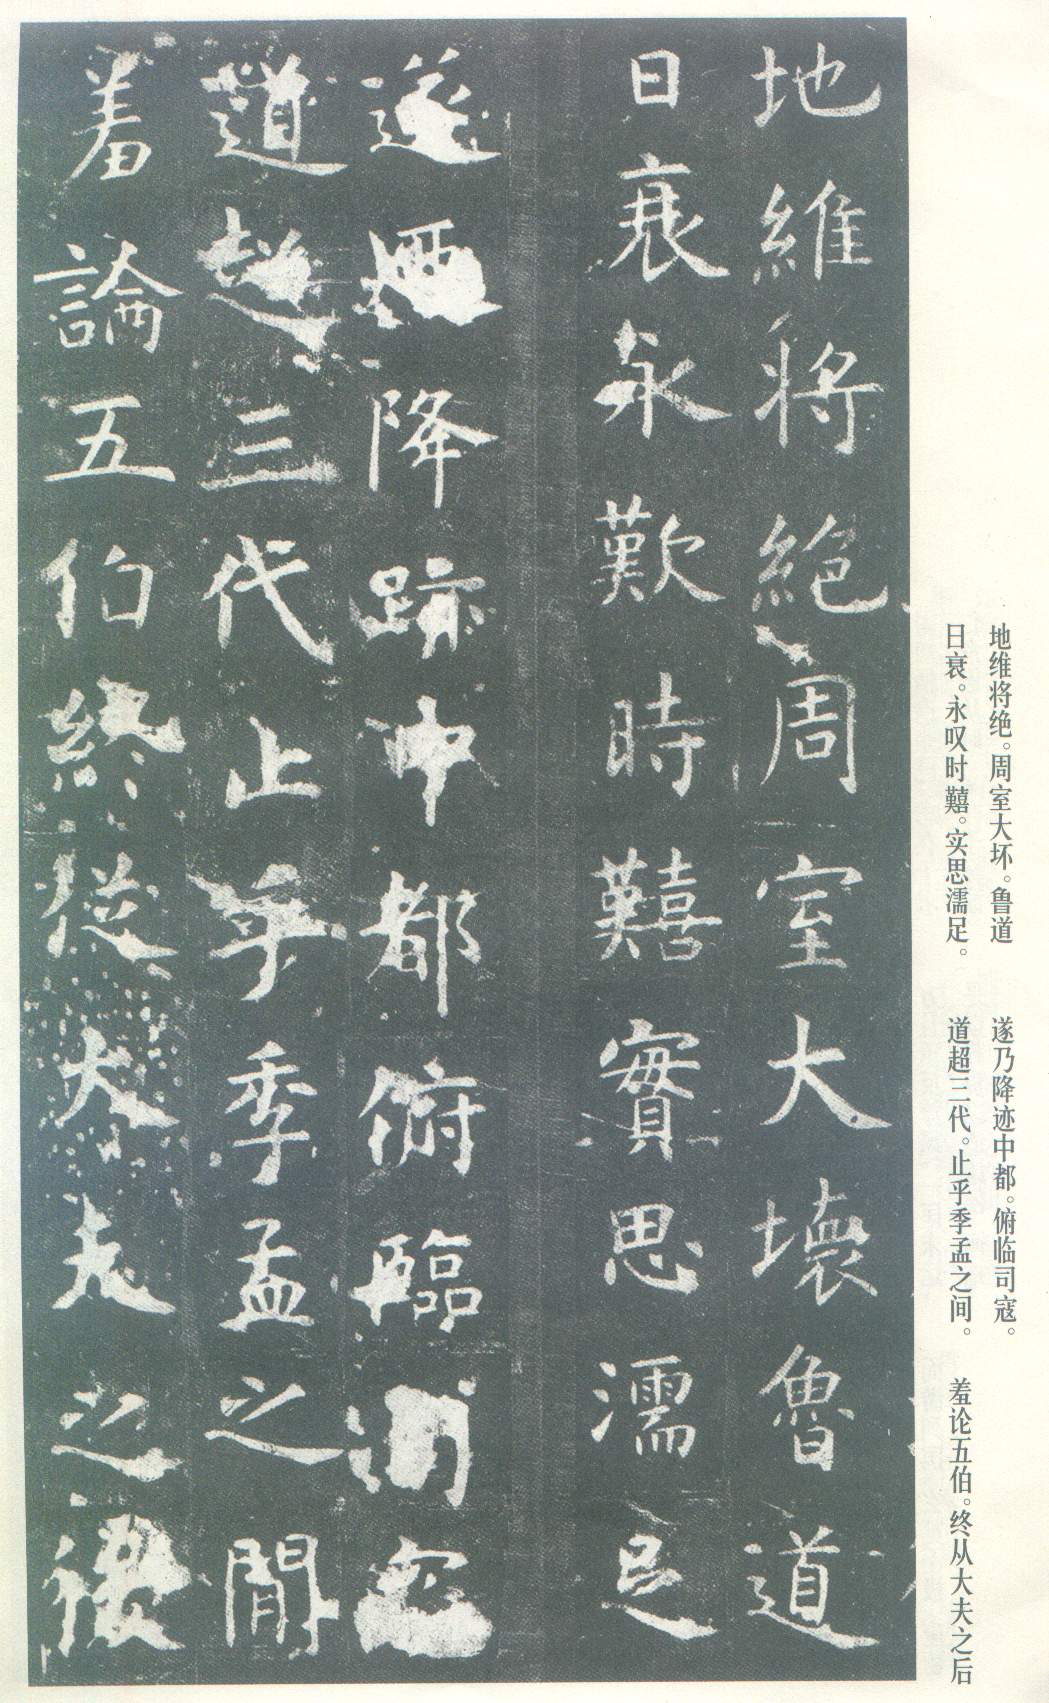 地维将绝。周室大坏。鲁道
日衰。永叹时囏。实思濡足。
遂乃降迹中都。俯临司寇。
道超三代。止乎季孟之间。
羞论五伯。终从大夫之后
地維将絕周室大壞魯道
日衰永歎時囏實思濡足
遂迺降跡中都俯臨司寇
道超三代止乎季孟之間
羞論五伯終從大夫之後